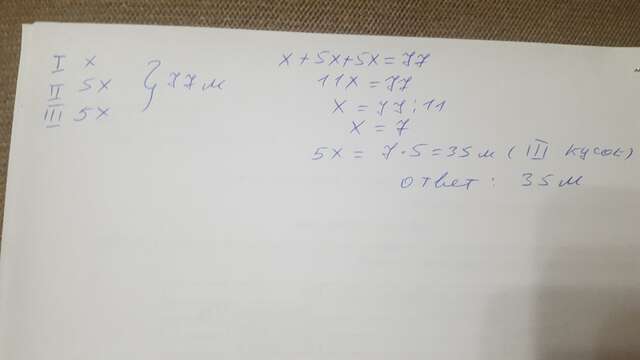 I x
II 5x } 77 м
III 5x
x + 5x + 5x = 77
11x = 77
x = 77 : 11
x = 7
5x = 7 · 5 = 35 м ( III кусок)
ответ : 35 м